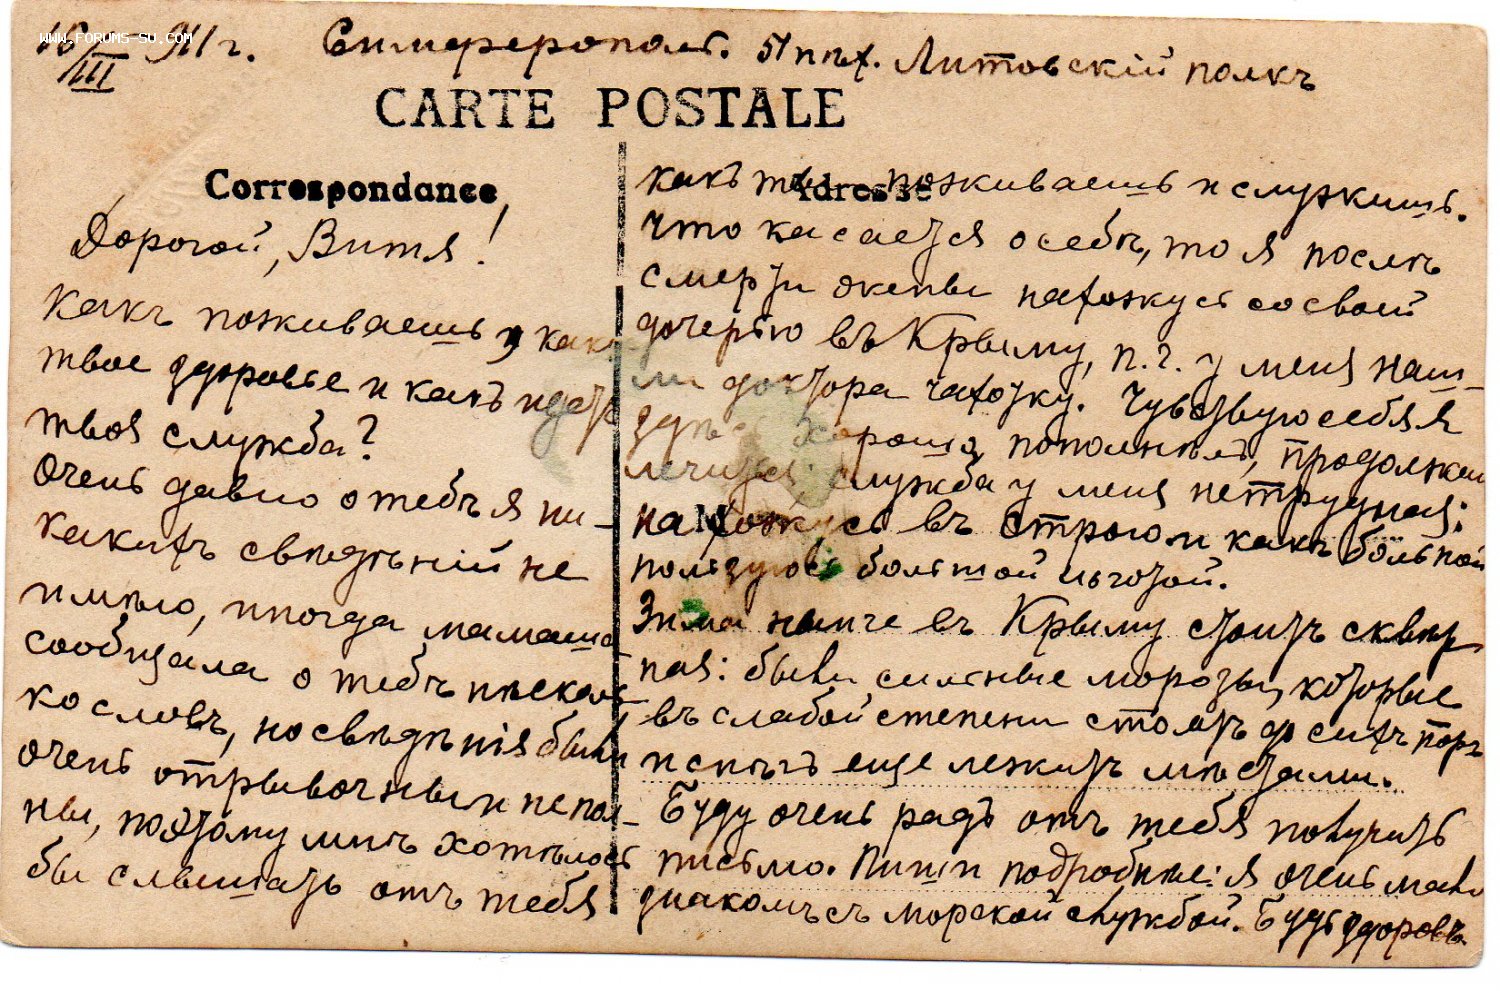 www.forums-su.com
16/III 911 г. Симферополь. 51 пѣх. Литовскій полкъ
CARTE POSTALE
Correspondance
Adresse
Дорогой, Витя!
Какъ поживаешь, какъ
твое здоровье и какъ идетъ
твоя служба?
Очень давно о тебѣ я ни-
какихъ свѣдѣній не
имѣю, иногда мамаша
сообщала о тебѣ нѣсколь-
ко словъ, но свѣдѣнія были
очень отрывочны и непол-
ны, поэтому мнѣ хотѣлось
бы слышать отъ тебя
какъ ты поживаешь и служишь.
Что касается о себѣ, то я послѣ
смерти жены нахожусь со своей
дочерью въ Крыму, п.ч. у меня наш-
ли доктора чахотку. Чувствую себя я
здѣсь хорошо, пополнѣлъ, продолжаю
лечиться; служба у меня нетрудная;
нахожусь въ строю и какъ больной
пользуюсь большой льготой.
Зима нынче въ Крыму стоитъ сквер-
ная: были сильные морозы, которые
въ слабой степени стоятъ до сихъ поръ
и снѣгъ еще лежитъ мѣстами.
Буду очень радъ отъ тебя получить
письмо. Пиши подробнѣе: я очень мало
знакомъ съ морской службой. Будь здоровъ.